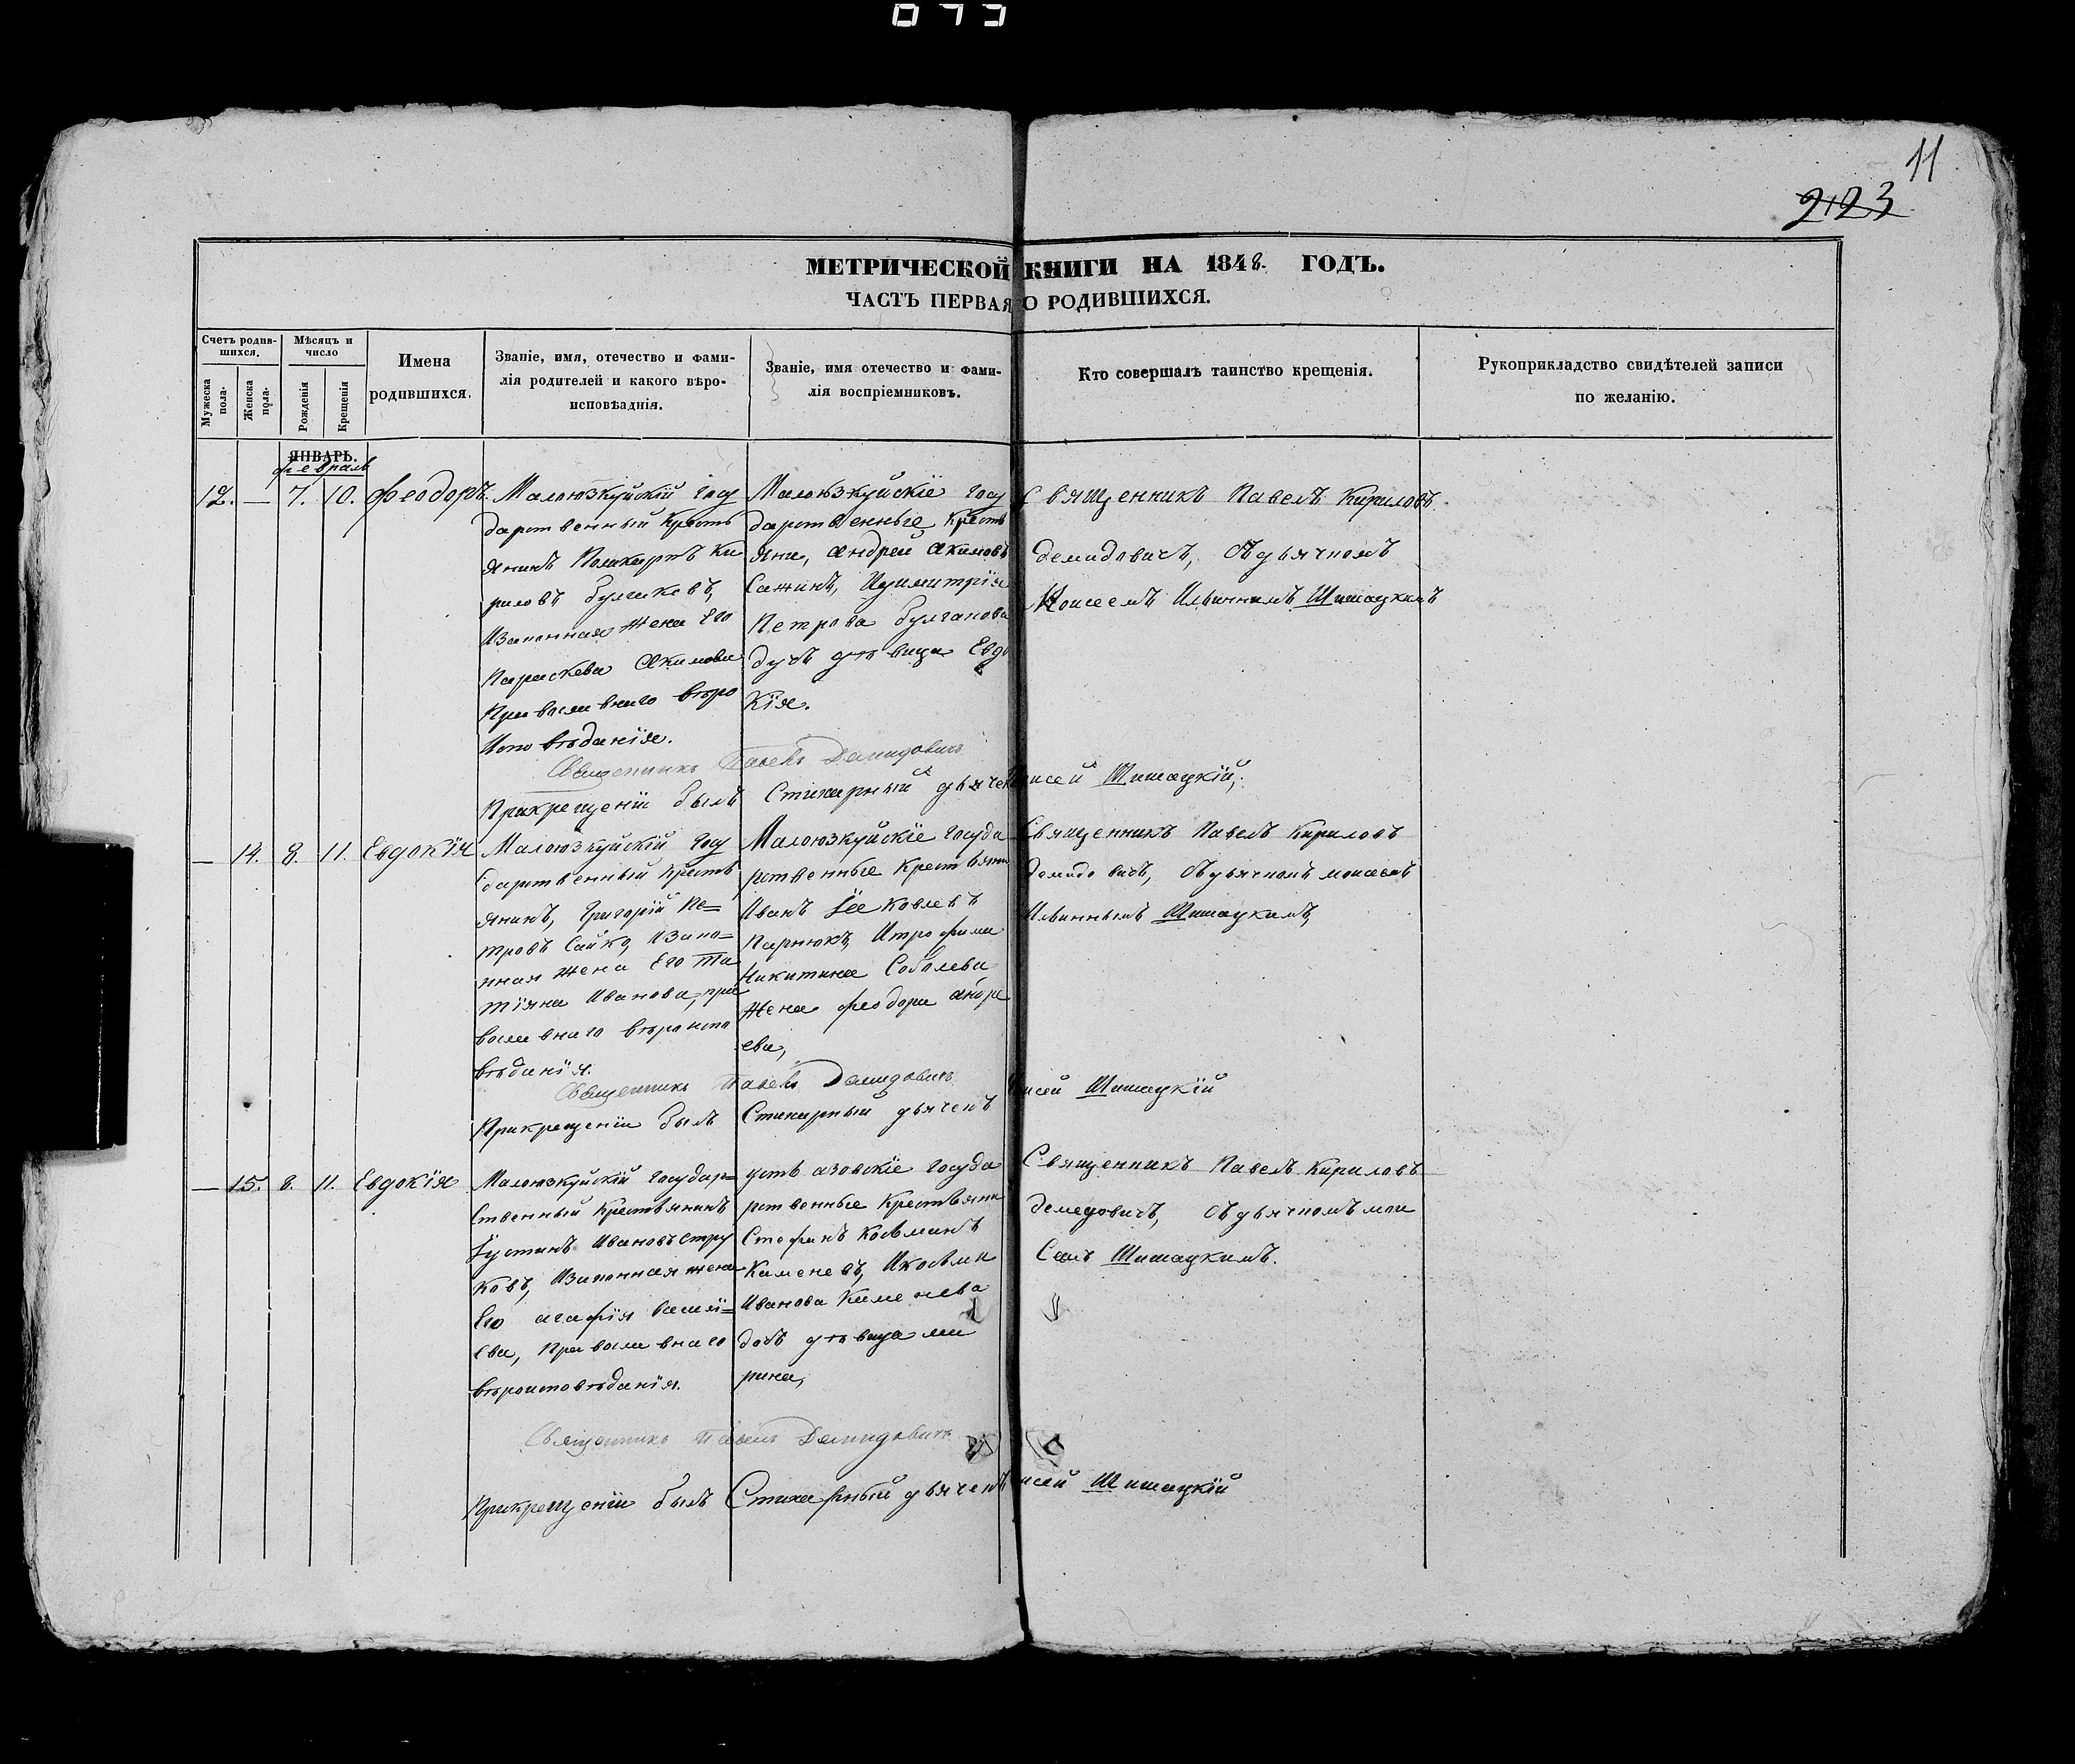 11
2123
МЕТРИЧЕСКОЙ КНИГИ НА 1848. ГОДЪ.
ЧАСТЬ ПЕРВАЯ О РОДИВШИХСЯ.
Счетъ родив-
шихся.
Мужеска
пола.
Женска
пола.
Мѣсяцъ и
число
Рожденія
Крещенія
Имена
родившихся.
Званіе, имя, отечество и фами-
лія родителей и какого вѣро-
исповѣаднія.
Званіе, имя отечество и фами-
лія воспріемниковъ.
Кто совершалъ таинство крещенія.
Рукоприкладство свидѣтелей записи
по желанію.
ЯНВАРЬ.
февраль
12. — 7. 10. Феодоръ
Малоюзкуйскій Госу
дарственный Кресть
янинъ Поликарпъ Ки
риловъ Булгаковъ,
Изаконная Жена Его
Параскева Акимова
Православнаго Вѣро
Исповѣданія.
Малоюзкуйскіе Госу
дарственные Кресть
яни, Андрей Акимовъ
Сажинъ, Идимитрія
Петрова Булгакова
дочь дѣвица Евдо
Кія.
Священникъ Павелъ Кириловъ
Демидовичъ, Съдьячкомъ
Моисеемъ Ильиннымъ Шишацкимъ
Священникъ Павелъ Демидовичъ
Прикрещеніи былъ Стихарный дьячекъ Моисей Шишацкій,
— 14. 8. 11. Евдокія
Малоюзкуйскій Госу
дарственный Кресть
янинъ, Григорій Пе=
тровъ Сайко, Изако=
нная Жена Его Та
тіяна Иванова, пра
вославнаго вѣроиспо
вѣданія.
Малоюзкуйскіе Госуда
рственные Крестьяни
Иванъ Іаковлевъ
Парнюкъ, Итрофима
Никитина Соболева
Жена Феодора Андре
ева,
Священникъ Павелъ Кириловъ
Демидовичъ, Съдьячкомъ моисеемъ
Ильиннымъ Шишацкимъ,
Священникъ Павелъ Демидовичъ
Прикрещеніи былъ Стихарный дьячекъ Моисей Шишацкій
— 15. 8. 11. Евдокія
Малоюзкуйскій Государ=
ственный Крестьянинъ
Іустинъ Ивановъ Стру
ковъ, Изаконная жена
Его Агафія Василі=
ева, Православнаго
вѣроисповѣданія.
Усть азовскіе Госуда
рственные Крестьяни
Стефанъ Косьминъ
Каменевъ, Икосьми
Иванова Каменева
дочь дѣвица Ма
рина,
Священникъ Павелъ Кириловъ
Демидовичъ, Съдьячкомъ мои
Сеемъ Шишацкимъ.
Священникъ Павелъ Демидовичъ
Прикрещеніи былъ Стихарный дьячекъ Моисей Шишацкій